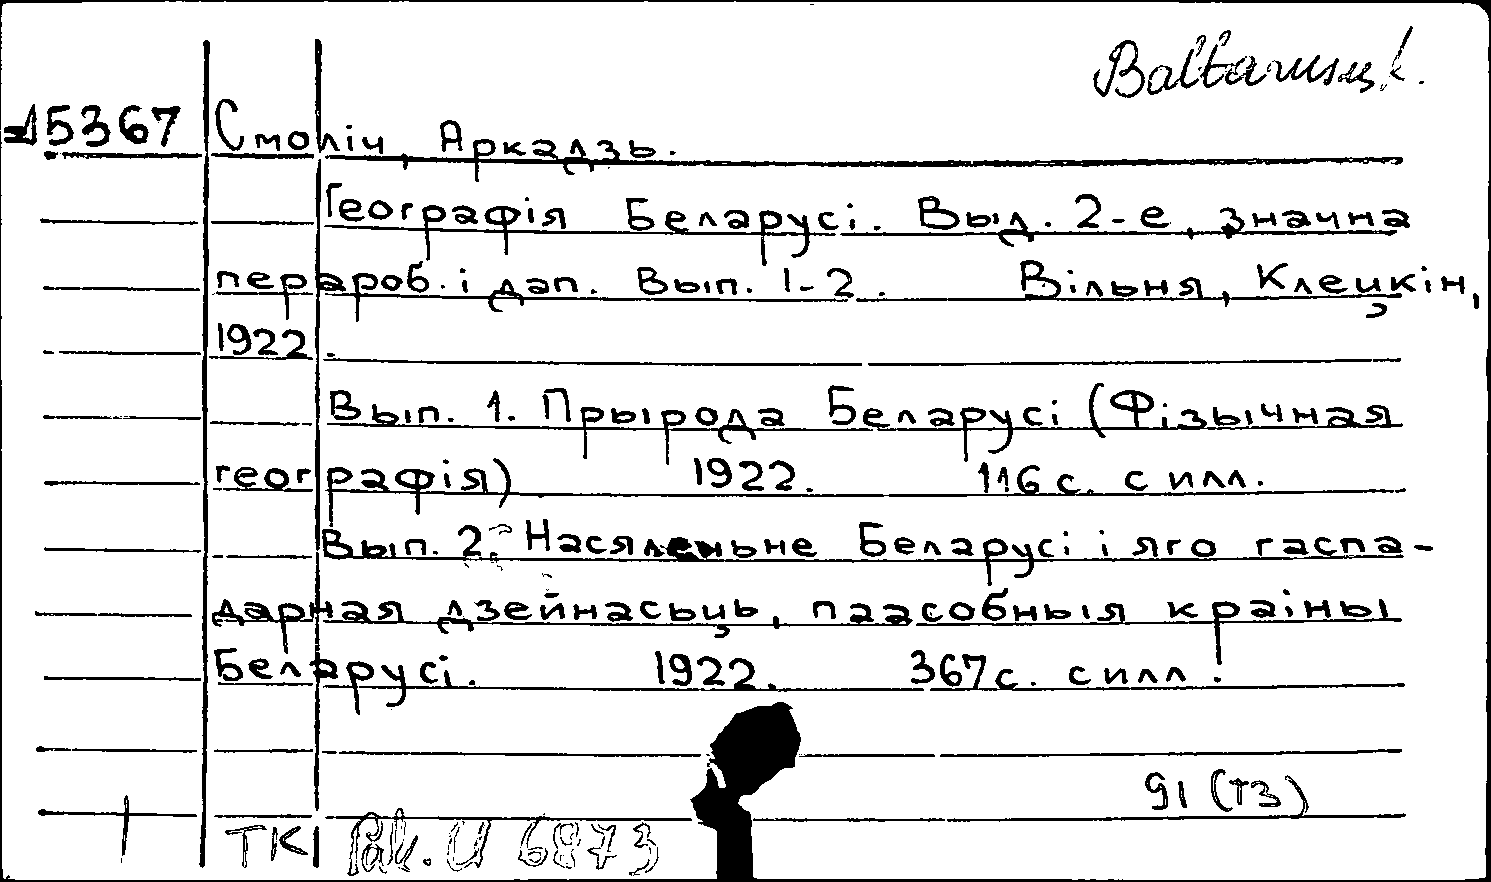 Baltarusų k.
15367 Смоліч, Аркадзь.
Географія Беларусі. Выд. 2-е, значна
перароб. і дап. Вып. 1-2. Вільня, Клецкін,
1922.
Вып. 1. Прырода Беларусі (Фізычная
географія) 1922. 116 с. с илл.
Вып. 2. Насяленьне Беларусі і яго гаспа-
дарная дзейнасьць, паасобныя краіны
Беларусі. 1922. 367 с. с илл.
91 (Т3)
1 ТК1 Pak. U 6873